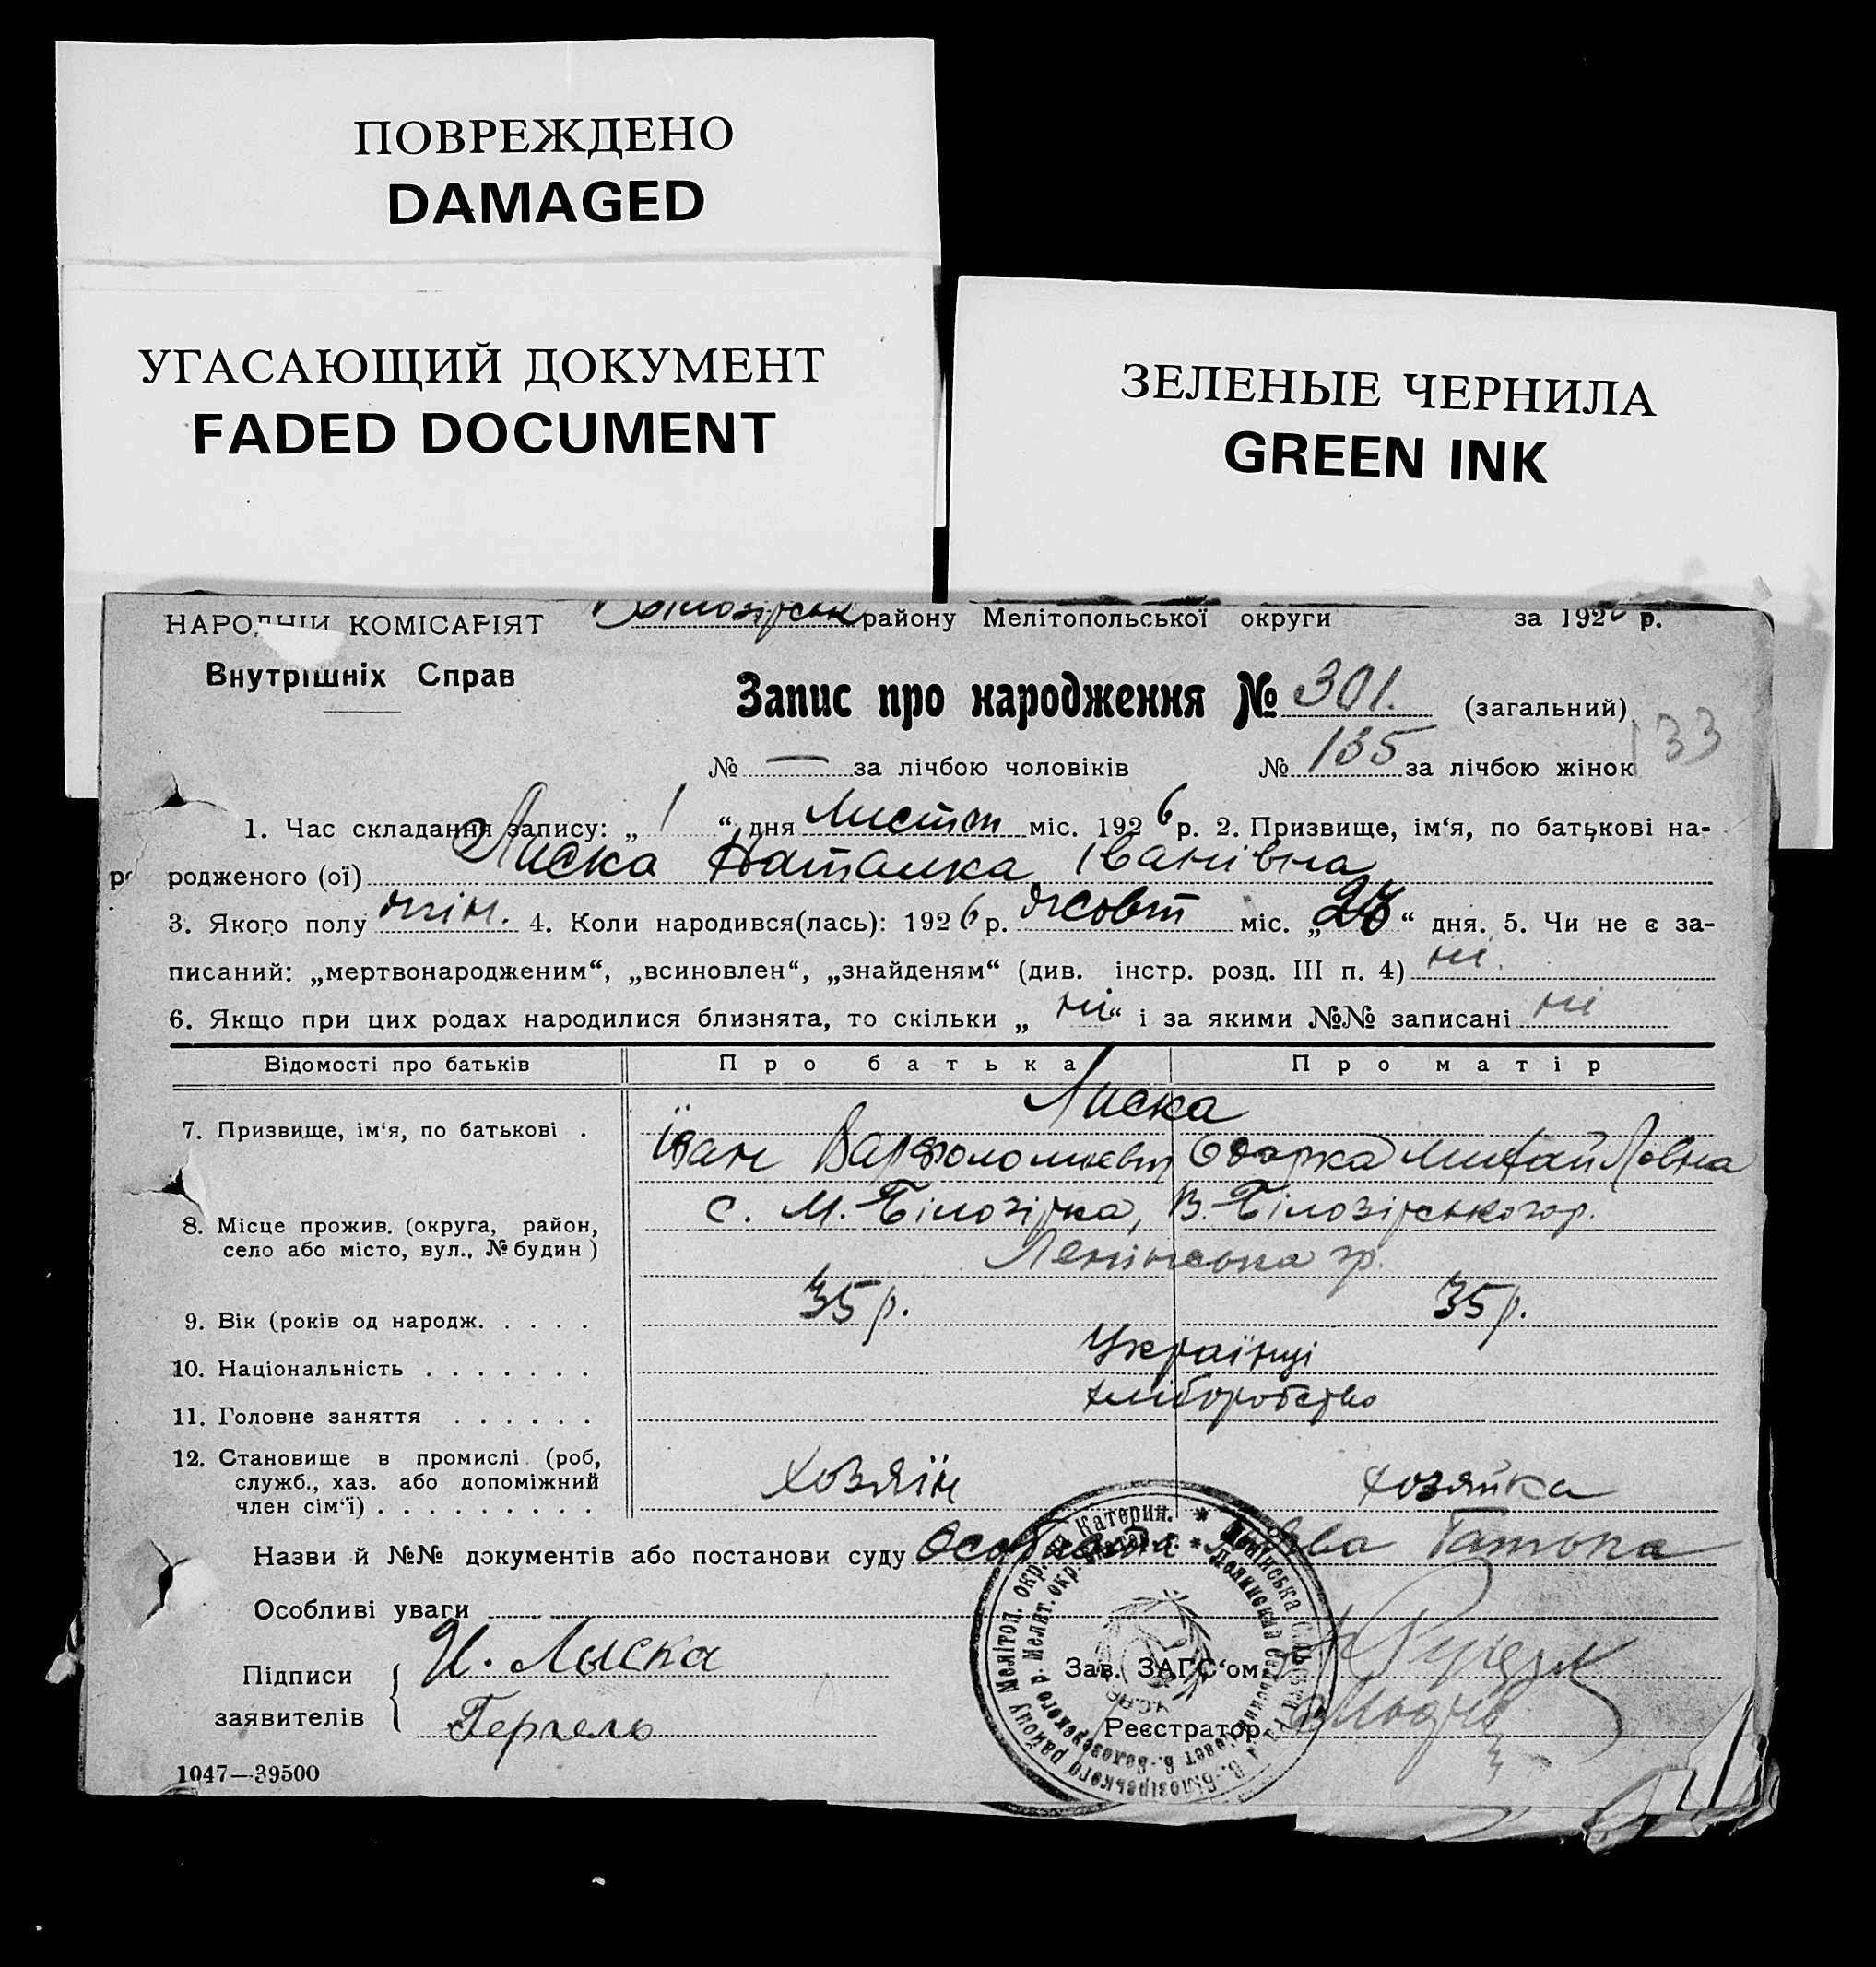 ПОВРЕЖДЕНО
DAMAGED
УГАСАЮЩИЙ ДОКУМЕНТ
FADED DOCUMENT
ЗЕЛЕНЫЕ ЧЕРНИЛА
GREEN INK
НАРОДНИЙ КОМІСАРІЯТ
Внутрішніх Справ
району Мелітопольської округи за 1926 р.
Запис про народження № 301. (загальний)
133
№ — за лічбою чоловіків № 135 за лічбою жінок
1. Час складання запису: „ 1 “ дня листоп міс. 1926 р. 2. Призвище, ім‘я, по батькові на-
родженого (ої) Лиска Наталка Іванівна
3. Якого полу жін. 4. Коли народився(лась): 1926 р. жовт міс. „ “ дня. 5. Чи не є за-
писаний: „мертвонародженим“, „всиновлен“, „знайденям“ (див. інстр. розд. III п. 4) ні.
6. Якщо при цих родах народилися близнята, то скільки „ ні “ і за якими №№ записані ні
Відомості про батьків Про батька Про матір
Лиска
7. Призвище, ім‘я, по батькові . Іван Одарка Михайловна
с. М.-Білозірка, В.-Білозірського р.
8. Місце прожив. (округа, район,
село або місто, вул., № будин )
Ленінська гр.
9. Вік (років од народж. . . . . 35 р. 35 р.
10. Національність . . . . . . . Українці
11. Головне заняття . . . . . . хліборобство
12. Становище в промислі (роб,
служб., хаз. або допоміжний
член сім‘ї) . . . . . . . . . Хозяїн хозяйка
Назви й №№ документів або постанови суду Особиста батька
Особливі уваги
Підписи
заявителів
И. Лыска
Гергель
Зав. ЗАГС‘ом
Реєстратор
1047—39500